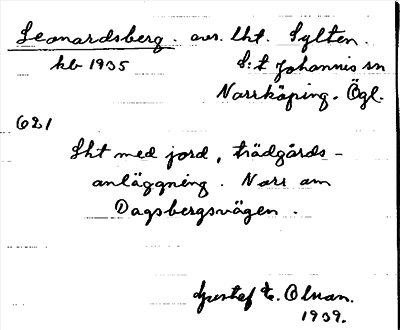 Leonardsberg. avs. lht. Sylten.
kb 1935 S:t Johannis sn
Norrköping. Ögl.
621
Lht med jord, trädgårds-
anläggning. Norr om
Dagsbergsvägen.
Gustaf E. Olsson.
1939.